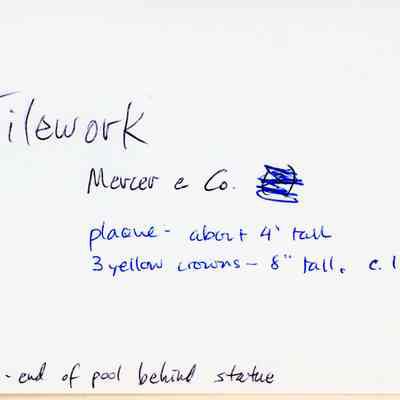 Tilework
Mercer & Co.
plaque - about 4' tall
3 yellow crowns - 8" tall. c. 1
- end of pool behind statue